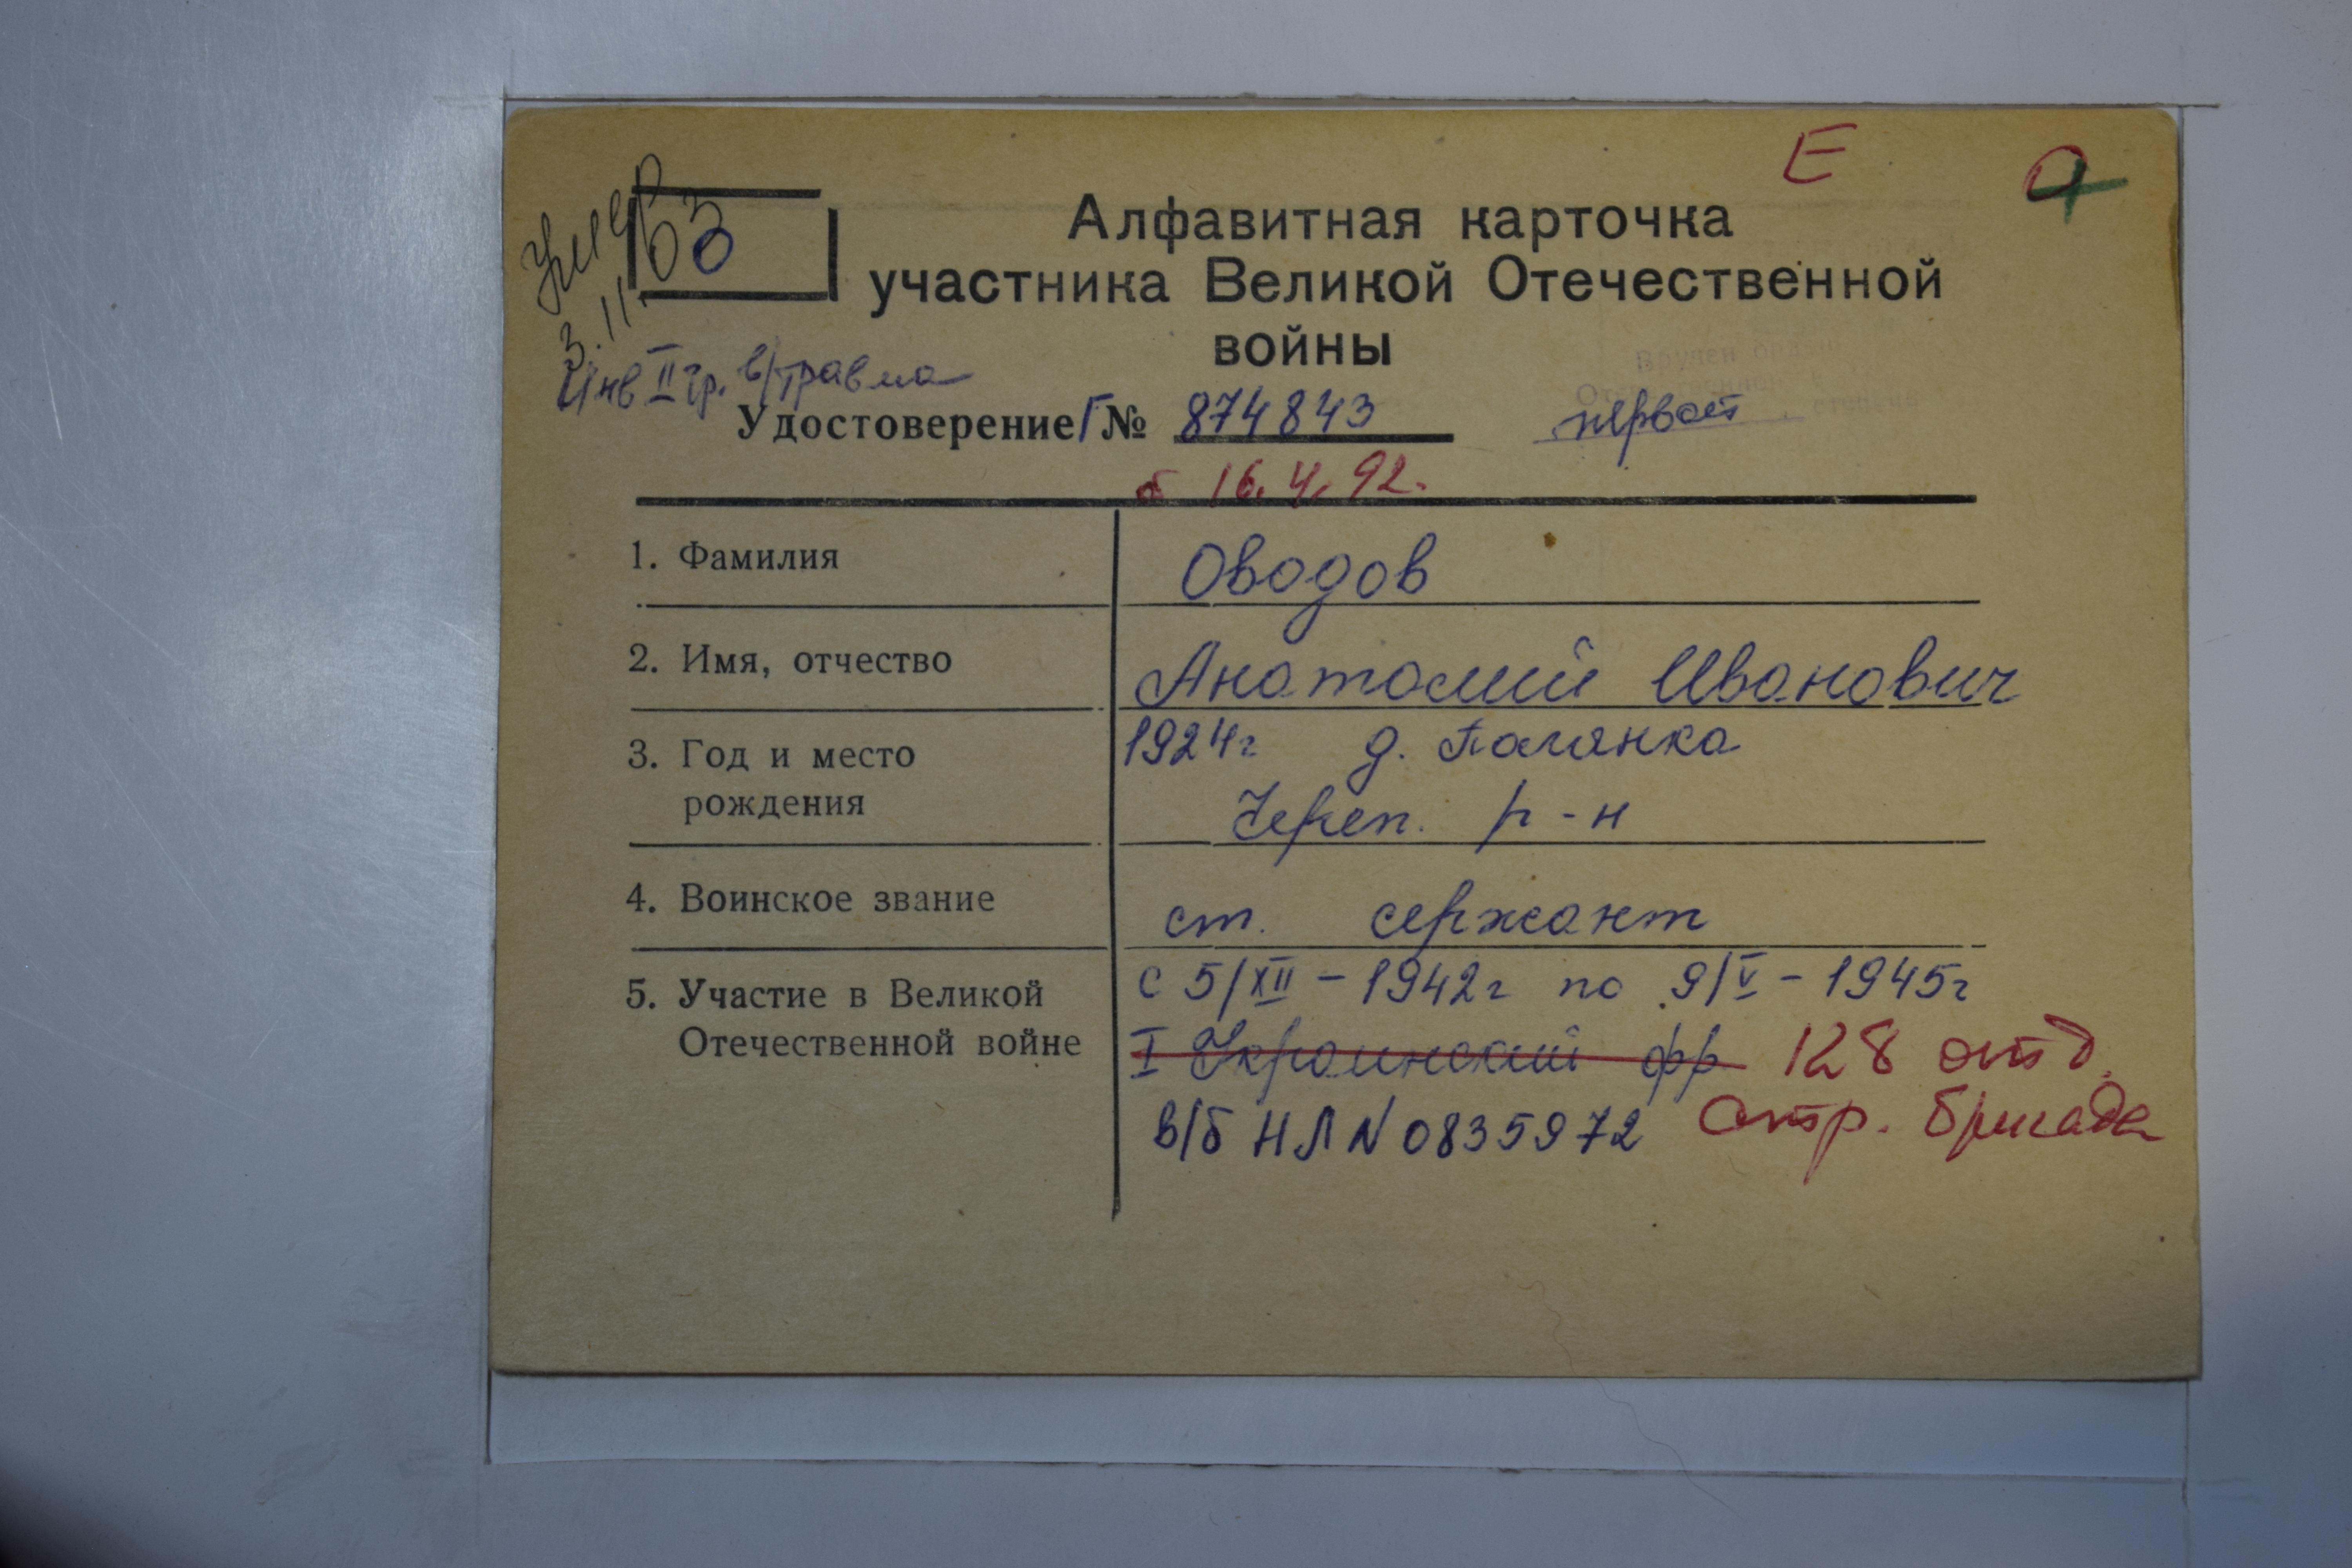 Е О
Умер
3.11.03
О
Алфавитная карточка
участника Великой Отечественной
войны
Инв II гр. в/травма
Вручен
Удостоверение Г № 874843
первой
б 16.4.92.
1. Фамилия Оводов
2. Имя, отчество Анатолий Иванович
3. Год и место 1924г д.
рождения Череп. р-н
4. Воинское звание ст. сержант
5. Участие в Великой с 5/XII - 1942г по 9/V - 1945г
Отечественной войне I Украинский фр 128 отд.
в/б НЛ N 0835972 стр. бригада